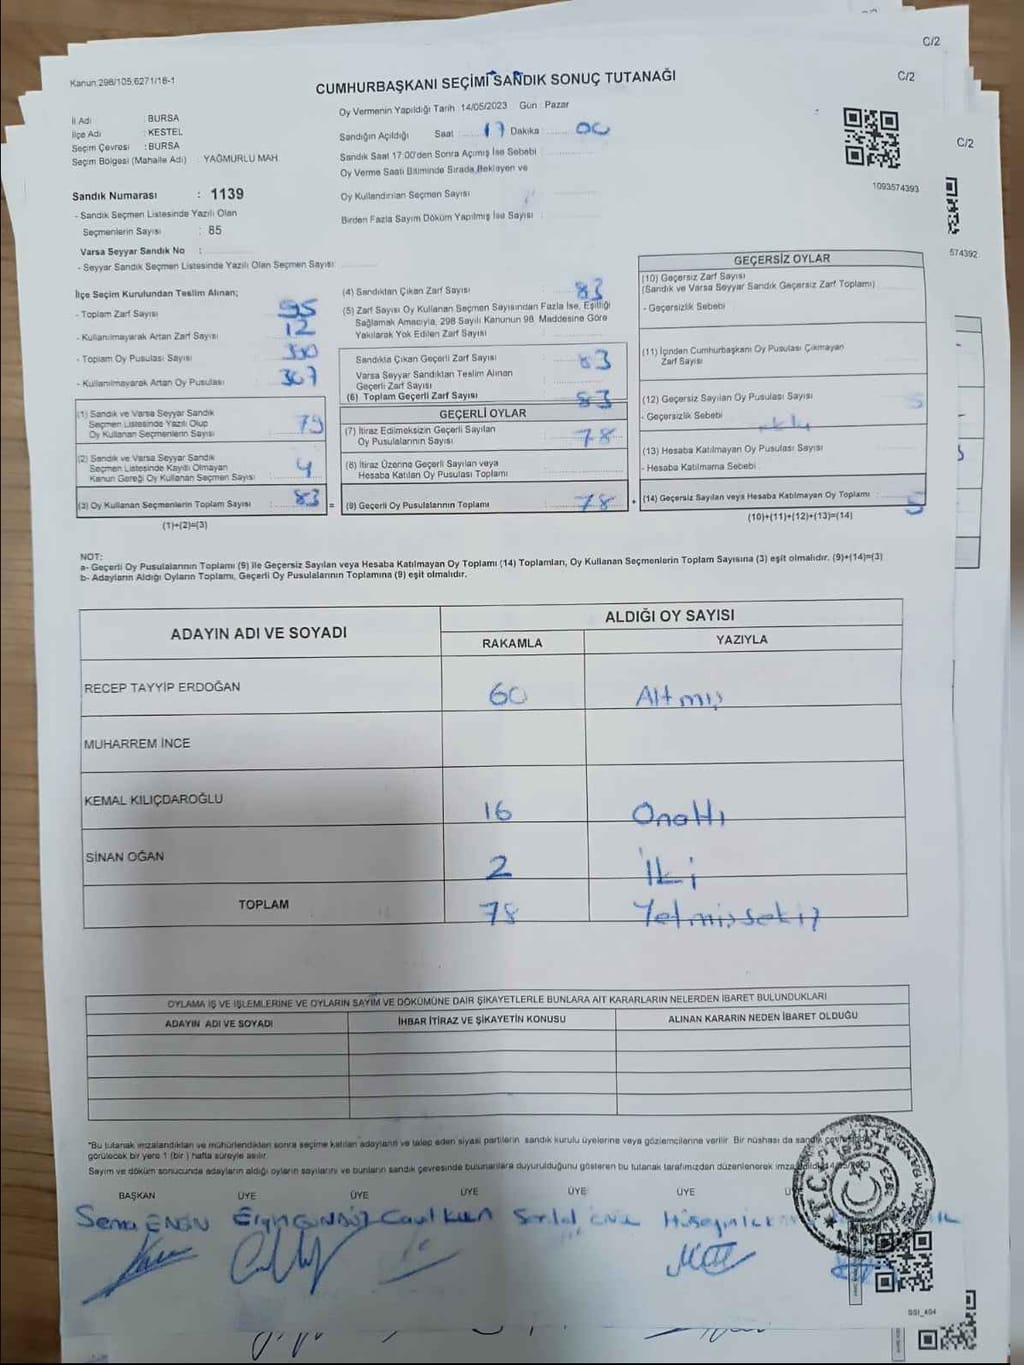 C/2
Kanun 298/105,6271/18-1
CUMHURBAŞKANI SEÇİMİ SANDIK SONUÇ TUTANAĞI
C/2
C/2
İl Adı : BURSA
İlçe Adı : KESTEL
Seçim Çevresi : BURSA
Seçim Bölgesi (Mahalle Adı) : YAĞMURLU MAH.
Oy Vermenin Yapıldığı Tarih : 14/05/2023 Gün : Pazar
Sandığın Açıldığı Saat 17 Dakika 00
Sandık Saat 17:00'den Sonra Açımış İse Sebebi
Oy Verme Saati Bitiminde Sırada Bekleyen ve
Oy Kullandırılan Seçmen Sayısı
Birden Fazla Sayım Döküm Yapılmış İse Sayısı
1093574393
574392
Sandık Numarası : 1139
- Sandık Seçmen Listesinde Yazılı Olan
Seçmenlerin Sayısı : 85
Varsa Seyyar Sandık No :
- Seyyar Sandık Seçmen Listesinde Yazılı Olan Seçmen Sayısı
İlçe Seçim Kurulundan Teslim Alınan;
- Toplam Zarf Sayısı 95
- Kullanılmayarak Artan Zarf Sayısı 12
- Toplam Oy Pusulası Sayısı
- Kullanılmayarak Artan Oy Pusulası 307
(1) Sandık ve Varsa Seyyar Sandık
Seçmen Listesinde Yazılı Olup
Oy Kullanan Seçmenlerin Sayısı 79
(2) Sandık ve Varsa Seyyar Sandık
Seçmen Listesinde Kayıtlı Olmayan
Kanun Gereği Oy Kullanan Seçmen Sayısı 4
(3) Oy Kullanan Seçmenlerin Toplam Sayısı 83 =
(1)+(2)=(3)
(4) Sandıktan Çıkan Zarf Sayısı 83
(5) Zarf Sayısı Oy Kullanan Seçmen Sayısından Fazla İse, Eşitliği
Sağlamak Amacıyla, 298 Sayılı Kanunun 98. Maddesine Göre
Yakılarak Yok Edilen Zarf Sayısı
Sandıkta Çıkan Geçerli Zarf Sayısı 83
Varsa Seyyar Sandıktan Teslim Alınan
Geçerli Zarf Sayısı
(6) Toplam Geçerli Zarf Sayısı 83
GEÇERLİ OYLAR
(7) İtiraz Edilmeksizin Geçerli Sayılan
Oy Pusulalarının Sayısı 78
(8) İtiraz Üzerine Geçerli Sayılan veya
Hesaba Katılan Oy Pusulası Toplamı
(9) Geçerli Oy Pusulalarının Toplamı 78 +
GEÇERSİZ OYLAR
(10) Geçersiz Zarf Sayısı
(Sandık ve Varsa Seyyar Sandık Geçersiz Zarf Toplamı)
- Geçersizlik Sebebi
(11) İçinden Cumhurbaşkanı Oy Pusulası Çıkmayan
Zarf Sayısı
(12) Geçersiz Sayılan Oy Pusulası Sayısı 5
- Geçersizlik Sebebi
(13) Hesaba Katılmayan Oy Pusulası Sayısı
- Hesaba Katılmama Sebebi
(14) Geçersiz Sayılan veya Hesaba Katılmayan Oy Toplamı 5
(10)+(11)+(12)+(13)=(14)
NOT:
a- Geçerli Oy Pusulalarının Toplamı (9) ile Geçersiz Sayılan veya Hesaba Katılmayan Oy Toplamı (14) Toplamları, Oy Kullanan Seçmenlerin Toplam Sayısına (3) eşit olmalıdır. (9)+(14)=(3)
b- Adayların Aldığı Oyların Toplamı, Geçerli Oy Pusulalarının Toplamına (9) eşit olmalıdır.
ADAYIN ADI VE SOYADI
ALDIĞI OY SAYISI
RAKAMLA YAZIYLA
RECEP TAYYİP ERDOĞAN 60 Altmış
MUHARREM İNCE
KEMAL KILIÇDAROĞLU 16 Onaltı
SİNAN OĞAN 2 İki
TOPLAM 78 Yetmişsekiz
OYLAMA İŞ VE İŞLEMLERİNE VE OYLARIN SAYIM VE DÖKÜMÜNE DAİR ŞİKAYETLERLE BUNLARA AİT KARARLARIN NELERDEN İBARET BULUNDUKLARI
ADAYIN ADI VE SOYADI İHBAR İTİRAZ VE ŞİKAYETİN KONUSU ALINAN KARARIN NEDEN İBARET OLDUĞU
*Bu tutanak imzalandıktan ve mühürlendikten sonra seçime katılan adayların ve talep eden siyasi partilerin sandık kurulu üyelerine veya gözlemcilerine verilir. Bir nüshası da sandık
görülecek bir yere 1 (bir) hafta süreyle asılır.
Sayım ve döküm sonucunda adayların aldığı oyların sayılarını ve bunların sandık çevresinde bulunanlara duyurulduğunu gösteren bu tutanak tarafımızdan düzenlenerek
BAŞKAN ÜYE ÜYE ÜYE ÜYE ÜYE
Sema ENGİN